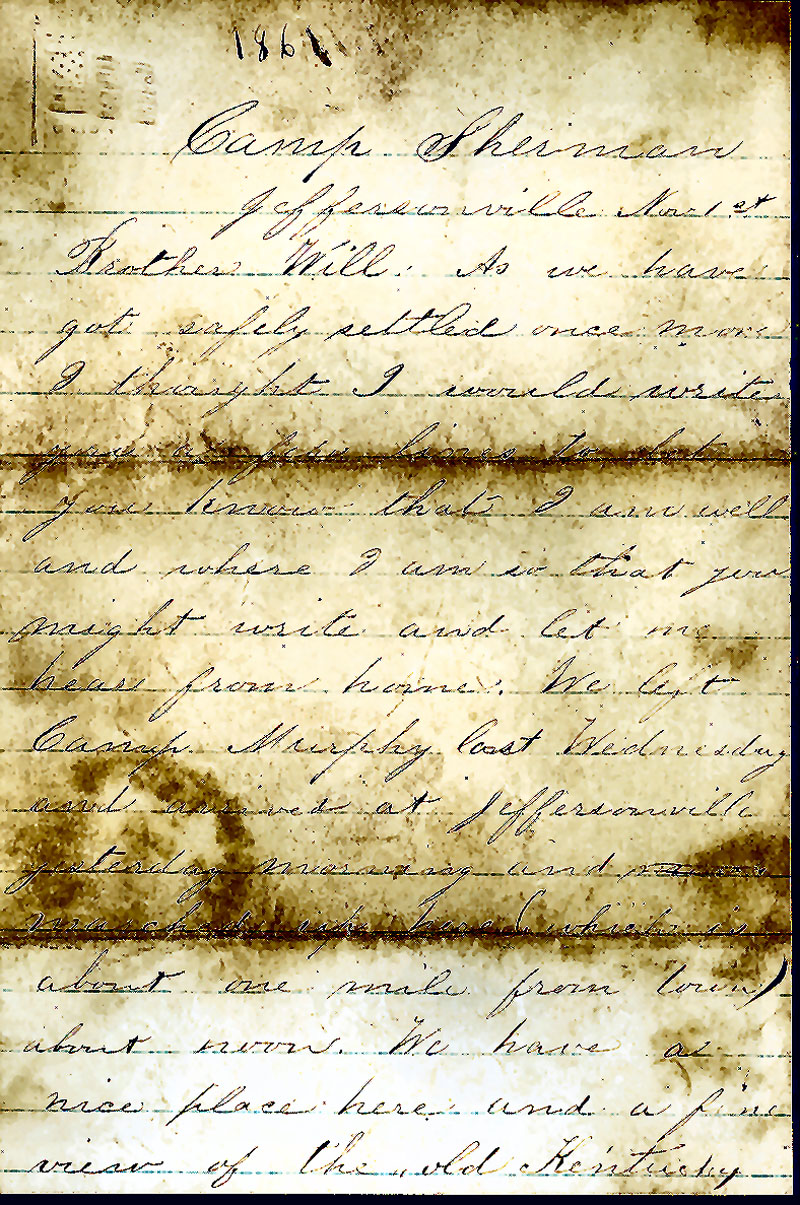 1861
Camp Sherman
Jeffersonville Nov 1st
Brother Will. As we have
got safely settled once more
I thought I would write
you a few lines to let
you know that I am well
and where I am so that you
might write and let me
hear from home. We left
Camp Murphy last Wednesday
and arrived at Jeffersonville
yesterday morning and
marched up here (which is
about one mile from town)
about noon. We have a
nice place here and a fine
view of the old Kentucky